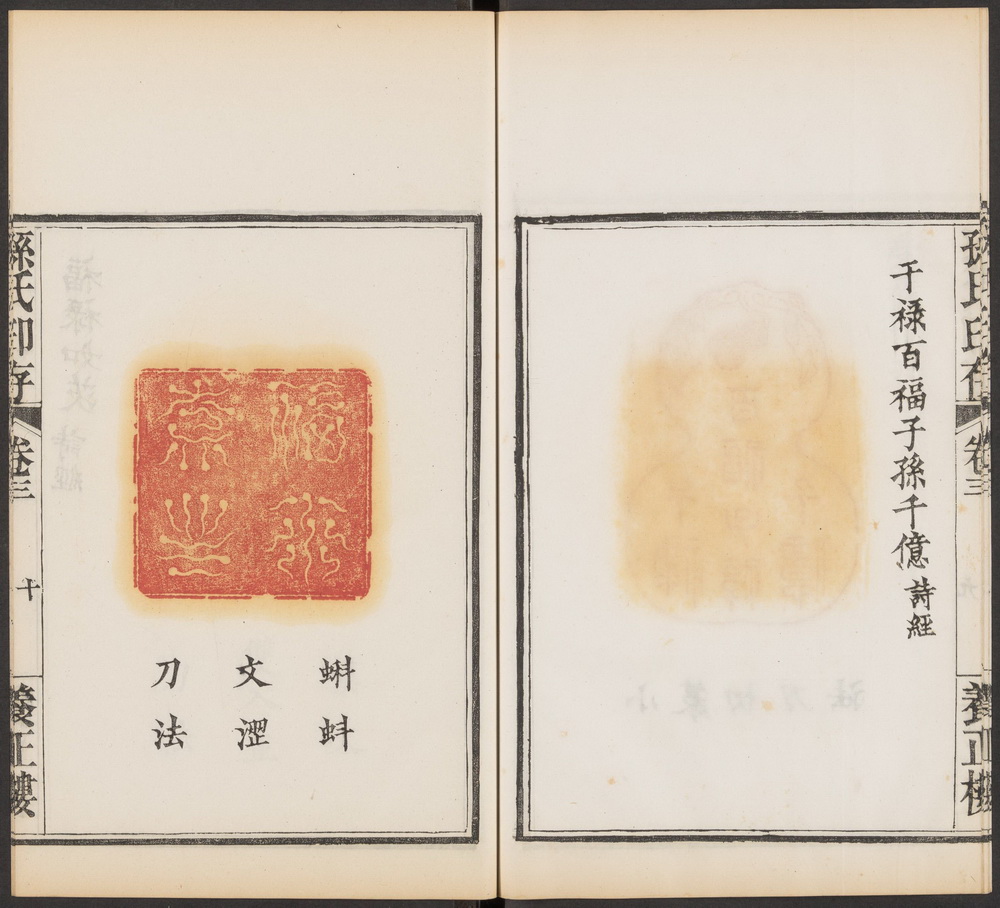 孫氏印存
卷三
養正樓
干祿百福子孫千億 詩經
蝌蚪
文澀
刀法
孫氏印存
卷三
十
養正樓